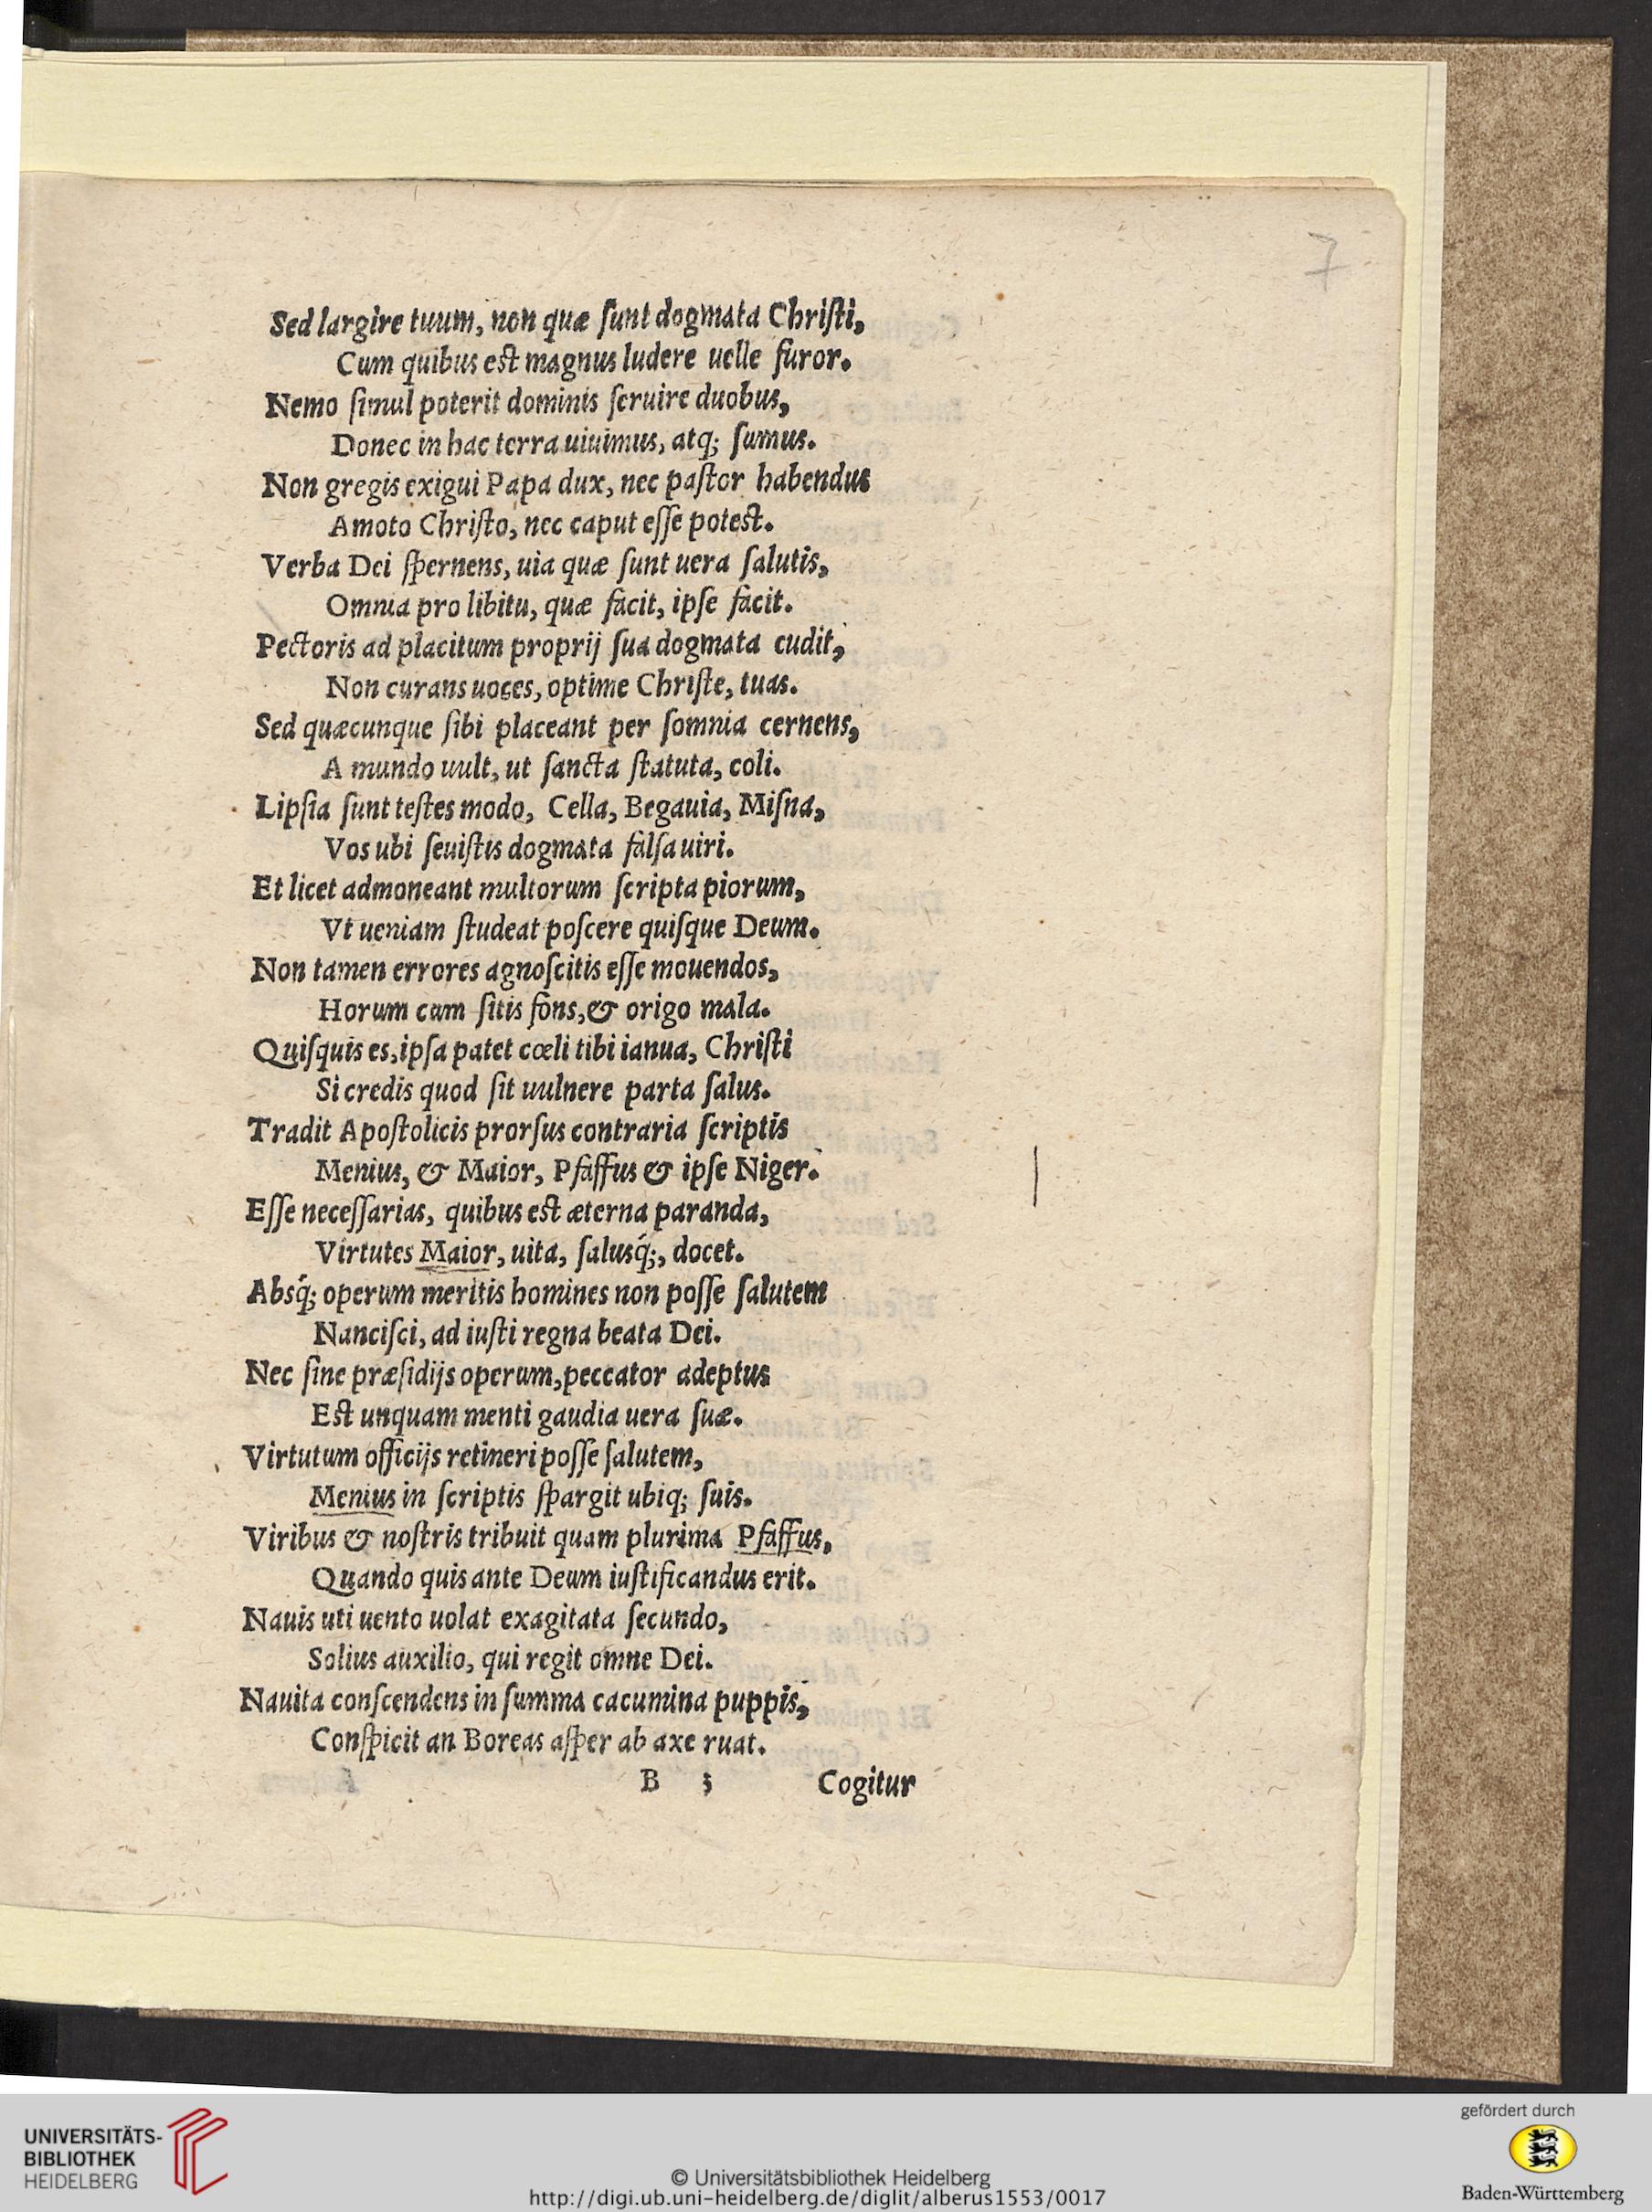 7
Sed largire tuum, non quæ ſunt dogmata Chriſti,
Cum quibus est magnus ludere uelle furor.
Nemo ſimul poterit dominis ſeruire duobus,
Donec in hac terra uiuimus, atq; ſumus.
Non gregis exigui Papa dux, nec paſtor habendus
Amoto Chriſto, nec caput eſſe potest.
Verba Dei ſpernens, uia quæ ſunt uera ſalutis,
Omnia pro libitu, quæ facit, ipſe facit.
Pectoris ad placitum proprij ſua dogmata cudit,
Non curans uoces, optime Chriſte, tuas.
Sed quæcunque ſibi placeant per ſomnia cernens,
A mundo uult, ut ſancta ſtatuta, coli.
Lipſia ſunt teſtes modo, Cella, Begauia, Miſna,
Vos ubi ſeuiſtis dogmata falſa uiri.
Et licet admoneant multorum ſcripta piorum,
Vt ueniam ſtudeat poſcere quiſque Deum.
Non tamen errores agnoſcitis eſſe mouendos,
Horum cum ſitis fons, & origo mala.
Quiſquis es, ipſa patet cœli tibi ianua, Chriſti
Si credis quod ſit uulnere parta ſalus.
Tradit Apoſtolicis prorſus contraria ſcriptis
Menius, & Maior, Pfaffus & ipſe Niger.
Eſſe neceſſarias, quibus est æterna paranda,
Virtutes Maior, uita, ſalusq́;, docet.
Absq́; operum meritis homines non poſſe ſalutem
Nanciſci, ad iuſti regna beata Dei.
Nec ſine præſidijs operum, peccator adeptus
Est unquam menti gaudia uera ſuæ.
Virtutum officijs retineri poſſe ſalutem,
Menius in ſcriptis ſpargit ubiq; ſuis.
Viribus & noſtris tribuit quam plurima Pfaffus,
Quando quis ante Deum iuſtificandus erit.
Nauis uti uento uolat exagitata ſecundo,
Solius auxilio, qui regit omne Dei.
Nauita conſcendens in ſumma cacumina puppis,
Conſpicit an Boreas aſper ab axe ruat.
B 3 Cogitur
UNIVERSITÄTS-
BIBLIOTHEK
HEIDELBERG
© Universitätsbibliothek Heidelberg
http://digi.ub.uni-heidelberg.de/diglit/alberus1553/0017
gefördert durch
Baden-Württemberg